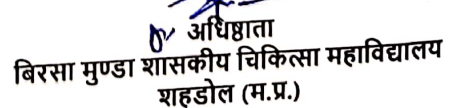 अधिष्ठाता
बिरसा मुण्डा शासकीय चिकित्सा महाविद्यालय
शहडोल (म.प्र.)